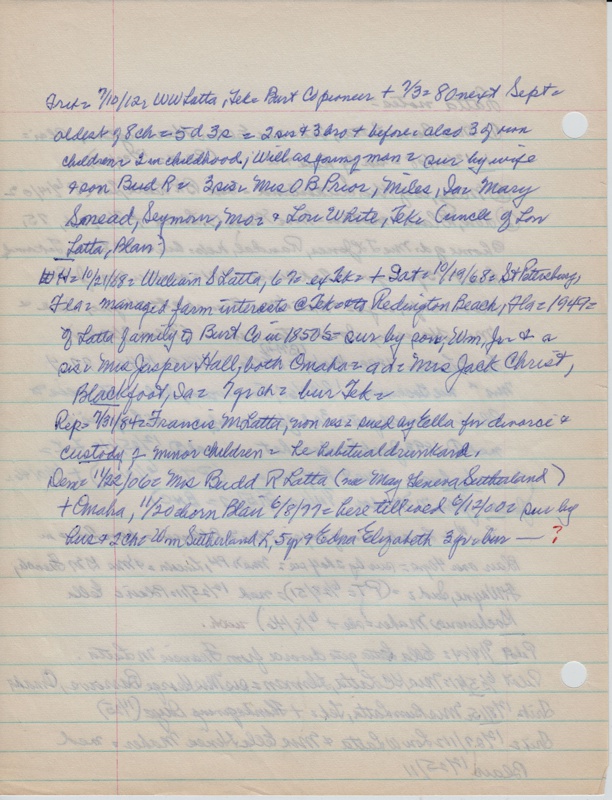 Trib= 7/10/12= WW Latta, Tek= Burt Co pioneer + 7/3= 80 next Sept=
oldest of 8 ch= 5 d 3 s = 2 sis & 3 bro + before= also 3 of own
children= 2 in childhood, Will as young man= sur by wife
& son Bud R= 3 sis= Mrs O B Prior, Miles, Ia= Mary
Snead, Seymour, Mo= & Lou White, Tek= (uncle of Lon
Latta, Blair)
WH= 10/21/68= William S Latta, 67= ex Tek= + Sat= 10/19/68= St Petersburg,
Fla= managed farm interests @ Tek= to Redington Beach, Fla= 1947=
of Latta family to Burt Co in 1850's= sur by son, Wm, Jr & a
sis= Mrs Jasper Hall, both Omaha= a d= Mrs Jack Christ,
Blackfoot, Ida= 7 gr ch= bur Tek=
Rep= 7/31/84= Francis M Latta, non res= sued by Ella for divorce &
custody of minor children= he habitual drunkard.
Dem= 11/22/06= Mrs Budd R Latta (nee May Geneva Sutherland)
+ Omaha, 11/20= born Blair 6/8/77= here till wed 6/12/00= sur by
hus & 2 ch= Wm Sutherland L, 5 yr & Edna Elizabeth 3 yr= bur — ?